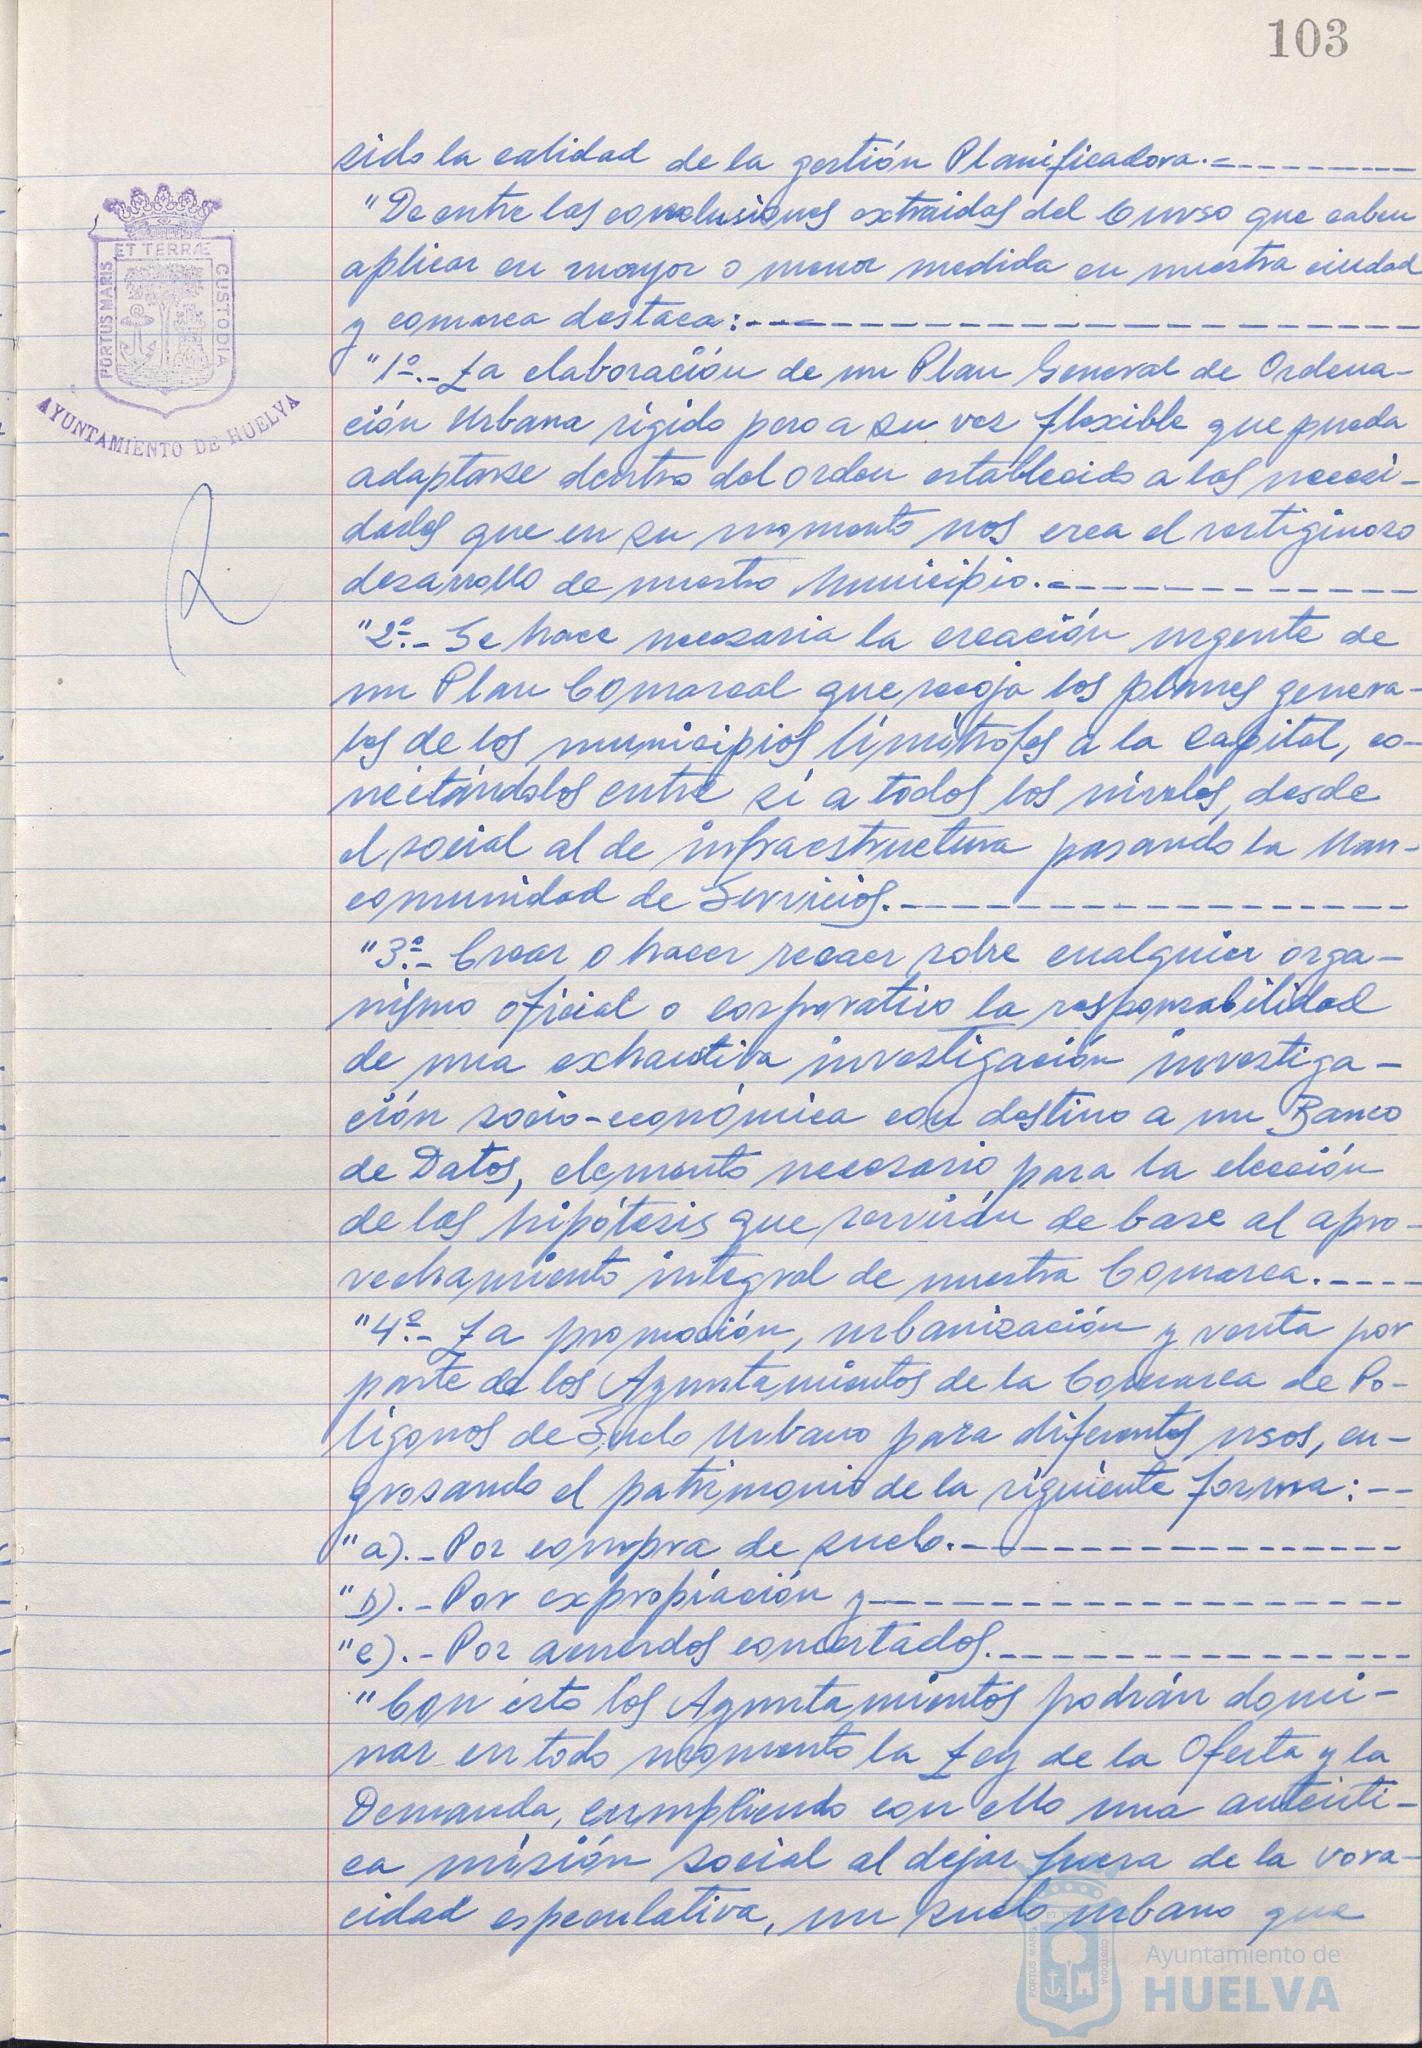 103
sido la calidad de la gestión Planificadora.-
"De entre las conclusiones extraidas del Curso que caben
aplicar en mayor o menor medida en nuestra ciudad
y comarca destaca:
"1º.- La elaboración de un Plan General de Ordena-
ción Urbana rígido pero a su vez flexible que pueda
adaptarse dentro del orden establecido a las necesi-
dades que en su momento nos crea el vertiginoso
desarrollo de nuestro Municipio.-
"2º.- Se hace necesaria la creación urgente de
un Plan Comarcal que recoja los planes genera-
les de los municipios limítrofes a la capital, co-
nectándolos entre sí a todos los niveles, desde
el social al de infraestructura pasando la Man-
comunidad de Servicios.-
"3º.- Crear o hacer recaer sobre cualquier orga-
nismo oficial o corporativo la responsabilidad
de una exhaustiva investigación investiga-
ción socio-económica con destino a un Banco
de Datos, elemento necesario para la elección
de las hipótesis que servirán de base al apro-
vechamiento integral de nuestra Comarca.-
"4º.- La promoción, urbanización y venta por
parte de los Ayuntamientos de la Comarca de Po-
lígonos de Suelo Urbano para diferentes usos, en-
grosando el patrimonio de la siguiente forma:
"a).- Por compra de suelo.-
"b).- Por expropiación y
"c).- Por acuerdos concertados.
"Con ésto los Ayuntamientos podrán domi-
nar en todo momento la Ley de la Oferta y la
Demanda, cumpliendo con ello una auténti-
ca misión social al dejar fuera de la vora-
cidad especulativa, un suelo urbano que
PORTUS MARIS
ET TERRÆ
CUSTODIA
AYUNTAMIENTO DE HUELVA
Ayuntamiento de
HUELVA